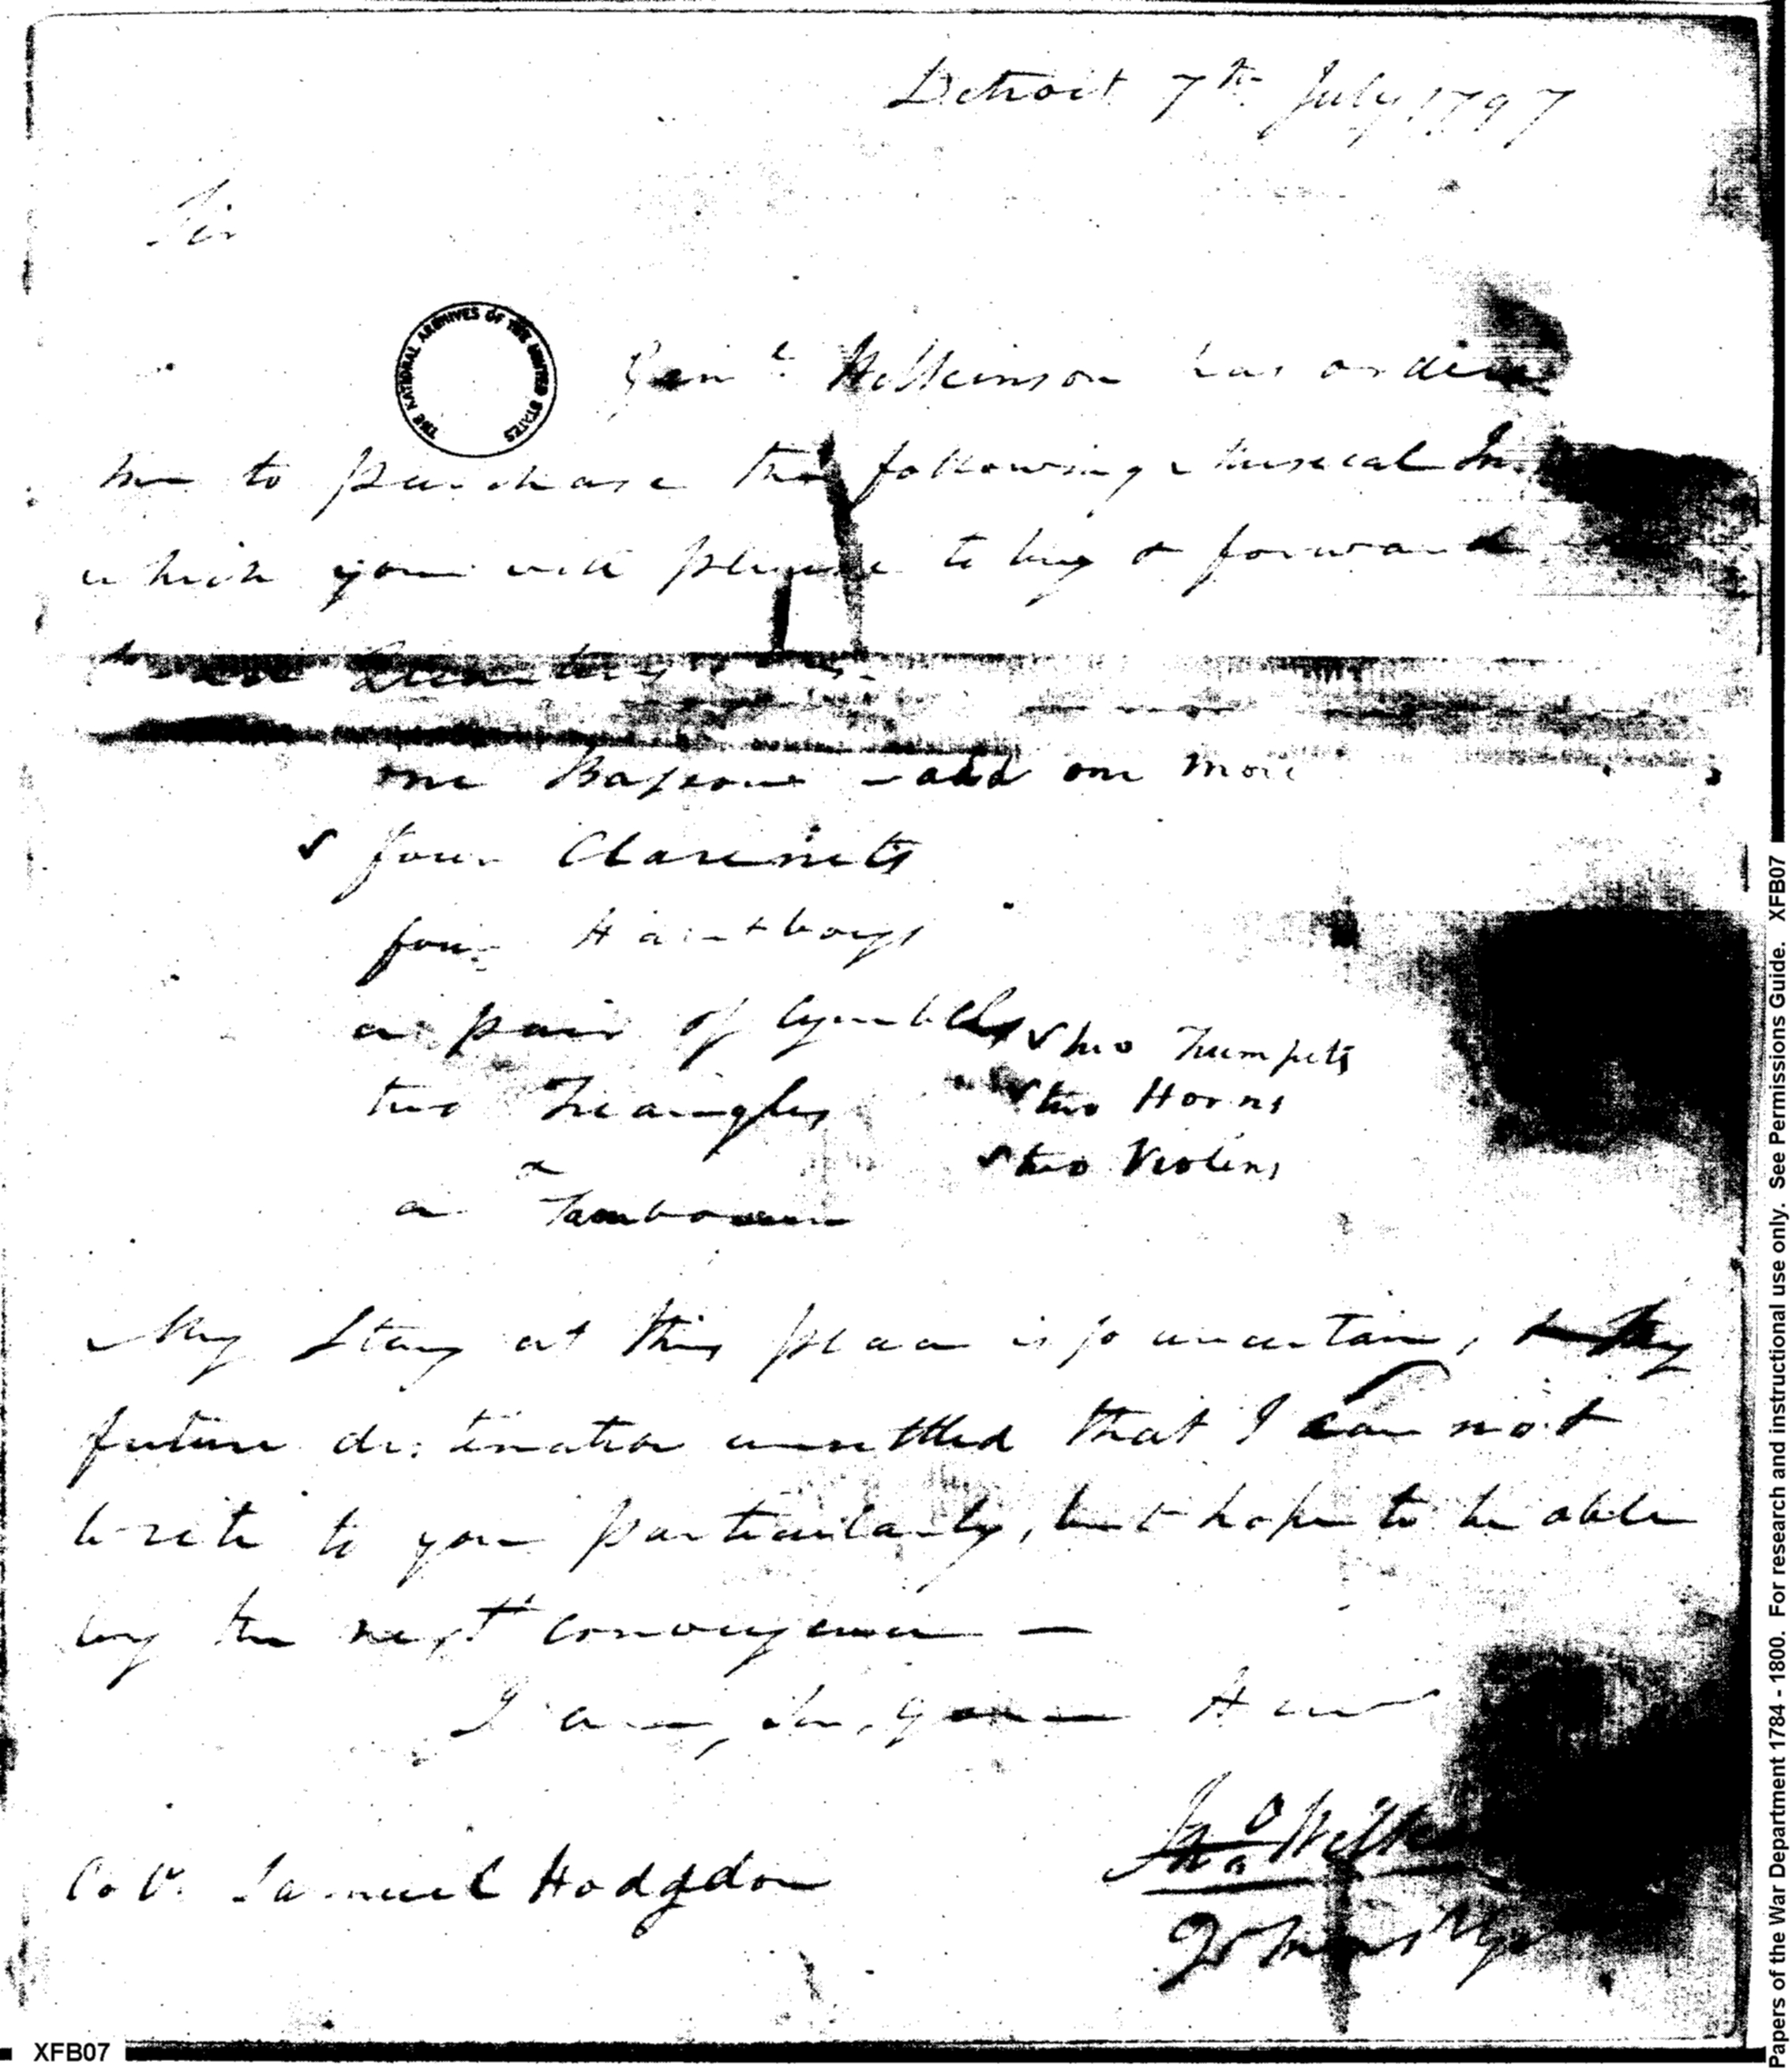 Detroit 7th July 1797
Sir
THE NATIONAL ARCHIVES OF THE UNITED STATES
Genl Wilkinson has
me to purchase the following Musical
which you will please to buy & forward
one Bassoon - add one more
✓ four Clarinets
four Hautboys
a pair of Cymbals
✓ two Trumpets
two Triangles
✓ two Horns
&
✓ two Violins
a
My Stay at this place is so uncertain, & My
future destination unsettled that I can not
write to you particularly, but hope to be able
by the next conveyance —
I am, Sir,
Jno
Colo. Samuel Hodgdon
XFB07
Papers of the War Department 1784 - 1800. For research and instructional use only. See Permissions Guide. XFB07